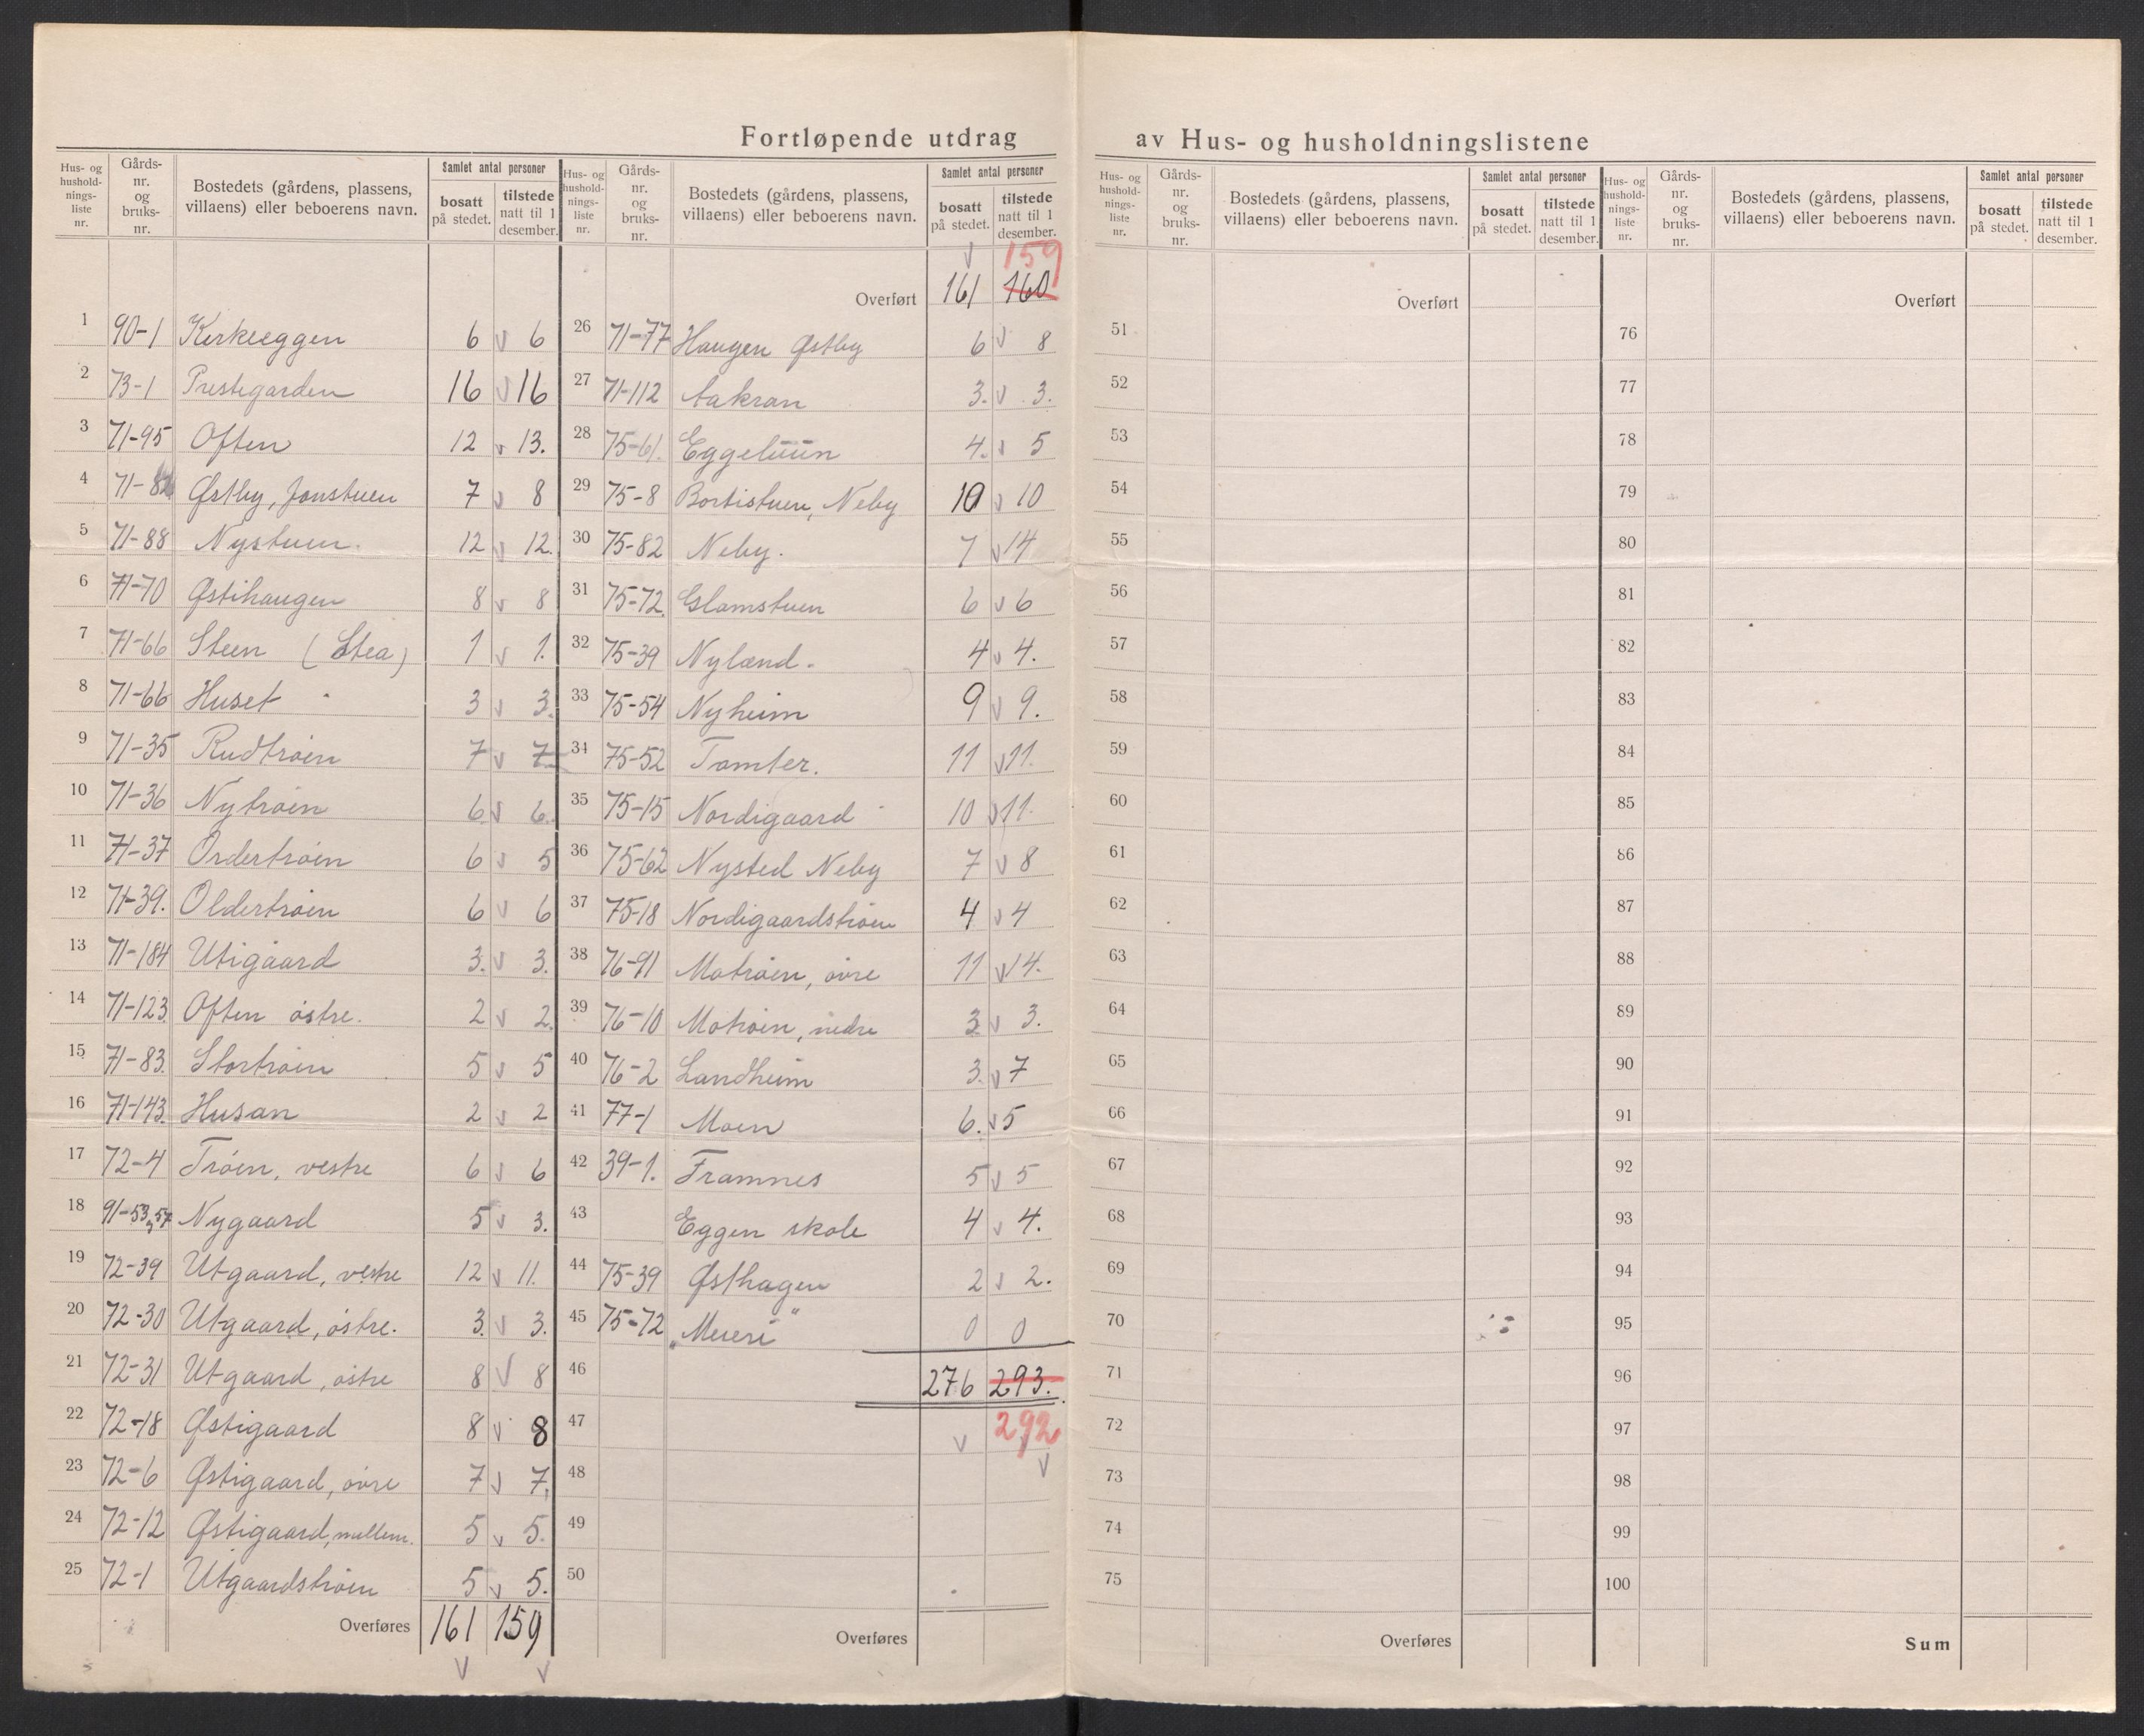 Fortløpende utdrag av Hus- og husholdningslistene
Hus- og hushold-nings-liste nr. | Gårds-nr. og bruks-nr. | Bostedets (gårdens, plassens, villaens) eller beboerens navn. | Samlet antal personer: bosatt på stedet. | tilstede natt til 1 desember.
1 90-1 Kirkeeggen 6 v 6
2 73-1 Prestegarden 16 v 16
3 71-95 Often 12 v 13.
4 71-82 Østby, Jonstuen 7 v 8
5 71-88 Nystuen. 12 v 12.
6 71-70 Østihaugen 8 v 8
7 71-66 Steen (Stea) 1 v 1.
8 71-66 Huset 3 v 3.
9 71-35 Rudtrøen 7 v 7
10 71-36 Nytrøen 6 v 6.
11 71-37 Ordertrøen 6 v 5
12 71-39. Oldertrøen 6 v 6
13 71-184 Utigaard 3. v 3.
14 71-123. Often østre. 2 v 2.
15 71-83. Stortrøen 5 v 5
16 71-143. Husan 2 v 2
17 72-4 Trøen, vestre 6 v 6
18 91-53, 57 Nygaard 5 v 3.
19 72-39 Utgaard, vestre 12 v 11.
20 72-30 Utgaard, østre. 3. v 3.
21 72-31 Utgaard, østre 8 v 8
22 72-18 Østigaard 8 v 8
23 72-6 Østigaard, øvre 7 v 7.
24 72-12 Østigaard, mellem. 5 v 5.
25 72-1 Utgaardstrøen 5 v 5.
Overføres 161 159
v v
Hus- og hushold-nings-liste nr. | Gårds-nr. og bruks-nr. | Bostedets (gårdens, plassens, villaens) eller beboerens navn. | Samlet antal personer: bosatt på stedet. | tilstede natt til 1 desember.
v 159
Overført 161 160
26 71-77 Haugen Østby 6 v 8
27 71-112 Aakran 3. v 3.
28 75-61. Eggetuun 4. v 5
29 75-8 Bortistuen, Neby 10 v 10
30 75-82 Neby. 7 v 14
31 75-72. Glamstuen 6 v 6
32 75-39 Nyland. 4 v 4.
33 75-54 Nyheim 9 v 9.
34 75-52 Tamter. 11 v 11.
35 75-15 Nordigaard 10 v 11.
36 75-62 Nysted Neby 7 v 8
37 75-18 Nordigaardstrøen 4 v 4
38 76-91 Motrøen, øvre 11 v 14.
39 76-10 Motrøen, nedre 3 v 3.
40 76-2 Landheim 3. v 7
41 77-1 Moen 6. v 5
42 39-1. Framnes 5 v 5
43 Eggen skole 4 v 4.
44 75-39 Østhagen 2 v 2.
45 75-72 "Meieri" 0 0
46 276 293.
47 v 292
48 v
49
50
Overføres
Hus- og hushold-nings-liste nr. | Gårds-nr. og bruks-nr. | Bostedets (gårdens, plassens, villaens) eller beboerens navn. | Samlet antal personer: bosatt på stedet. | tilstede natt til 1 desember.
Overført
51
52
53
54
55
56
57
58
59
60
61
62
63
64
65
66
67
68
69
70
71
72
73
74
75
Overføres
Hus- og hushold-nings-liste nr. | Gårds-nr. og bruks-nr. | Bostedets (gårdens, plassens, villaens) eller beboerens navn. | Samlet antal personer: bosatt på stedet. | tilstede natt til 1 desember.
Overført
76
77
78
79
80
81
82
83
84
85
86
87
88
89
90
91
92
93
94
95
96
97
98
99
100
Sum